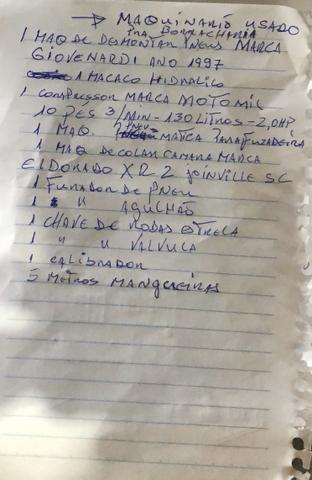 → MAQUINARIO USADO
BORRACHARIA
1 MAQ DE DESMONTAR PNEUS MARCA
GIOVENARDI ANO 1997
1 MACACO HIDRALICO
1 COMPRESSOR MARCA MOTOMIL
10 PES 3/MIN - 130 LITROS - 2,0HP
1 MAQ. PARAFUZADEIRA
1 MAQ DE COLAR CAMARA MARCA
ELDORADO XR2 JOINVILLE SC
1 FURADOR DE PNEU
1 " AGULHÃO
1 CHAVE DE RODAS ESTRELA
1 " " VALVULA
1 CALIBRADOR
5 METROS MANGUEIRAS